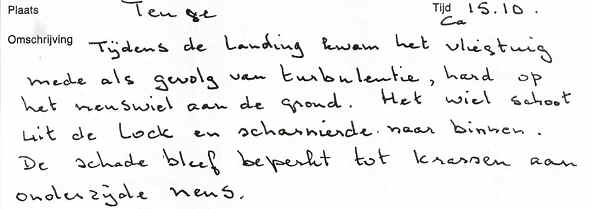 Plaats Teuge Tijd 15.10.
Ca
Omschrijving Tijdens de Landing kwam het vliegtuig
mede als gevolg van turbulentie, hard op
het neuswiel aan de grond. Het wiel schoot
uit de Lock en scharnierde naar binnen.
De schade bleef beperkt tot krassen aan
onderzijde neus.